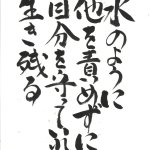 水のように
他を責めずに
自分を守って
生き残る